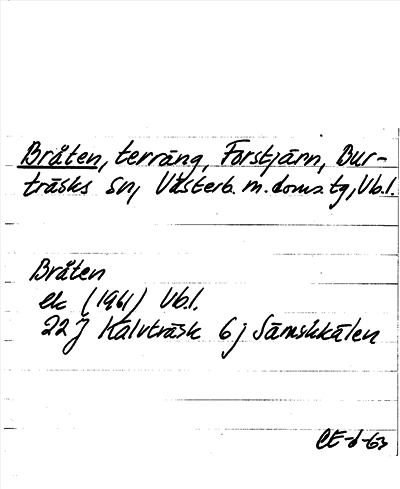 Bråten, terräng, Forstjärn, Bur-
träsks sn, Västerb. m. doms.tg, Vb.l.
Bråten
ek (1961) Vb.l.
22 J Kalvträsk 6 j Sämskkålen
CE-6-63